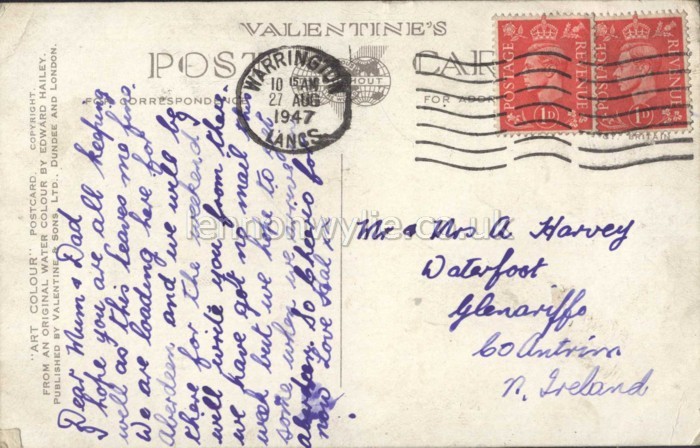 VALENTINE'S
POST CARD
FOR CORRESPONDENCE
FOR ADDRESS
WARRINGTON
10 15 AM
27 AUG
1947
LANCS.
POSTAGE REVENUE
1D
POSTAGE REVENUE
1D
"ART COLOUR" POSTCARD. COPYRIGHT.
FROM AN ORIGINAL WATER COLOUR BY EDWARD HAILEY.
PUBLISHED BY VALENTINE & SONS, LTD., DUNDEE AND LONDON.
Dear Mum & Dad
I hope you are all keeping
well as this leaves me fine.
We are loading here for
Aberdeen and we will be
there for the weekend I
will write you from there.
we have got no mail this
week but we hope to get
some when we arrive in
aberdeen. So Cheerio for
now Love Seal x
Mr & Mrs A Harvey
Waterfoot
Glenariffe
Co Antrim
N. Ireland
lennonwylie.co.uk